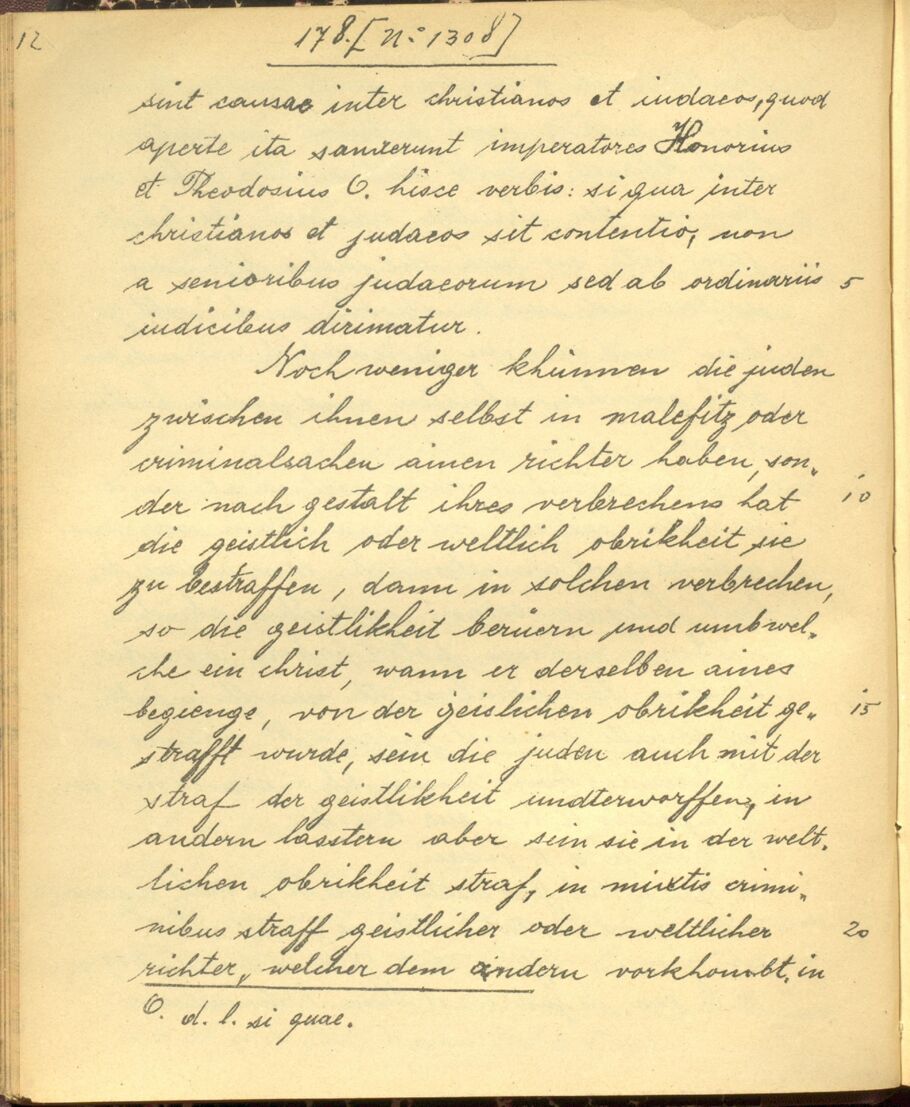 12
178. [N: 1308]
sint causae inter christianos et iudaeos, quod
aperte ita sanxerunt imperatores Honorius
et Theodosius O. hisce verbis: si qua inter
christianos et judaeos sit contentio, non
a senioribus judaeorum sed ab ordinariis 5
iudicibus dirimatur.
Noch weniger khünnen die juden
zwischen ihnen selbst in malefitz oder
criminalsachen ainen richter haben, son„
der nach gestalt ihres verbrechens hat 10
die geistlich oder weltlich obrikheit sie
zu bestraffen, dann in solchen verbrechen,
so die geistlikheit berüern und umb wel„
che ein christ, wann er derselben aines
begienge, von der geislichen obrikheit ge„ 15
strafft wurde, sein die juden auch mit der
straf der geistlikheit undterworffen, in
andern lasstern aber sein sie in der welt„
lichen obrikheit straf, in mixtis crimi„
nibus straff geistlicher oder weltlicher 20
richter, welcher dem andern vorkhombt, in
O. d. l. si quae.